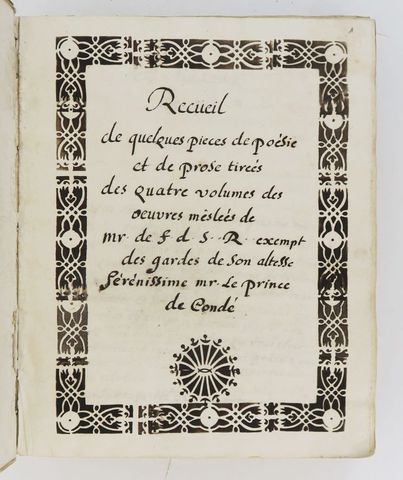 Recueil
de quelques pieces de poésie
et de prose tireés
des quatre volumes des
oeuvres mésleés de
mr. de f. d. S.. R. exempt
des gardes de son altesse
sérénissime mr. Le prince
de Condé